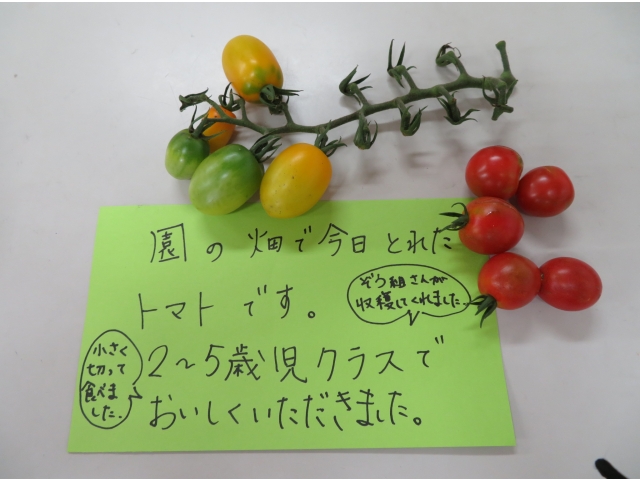 園の畑で今日とれた
トマトです。
ぞう組さんが
収穫してくれました。
2~5歳児クラスで
おいしくいただきました。
小さく
切って
食べま
した。